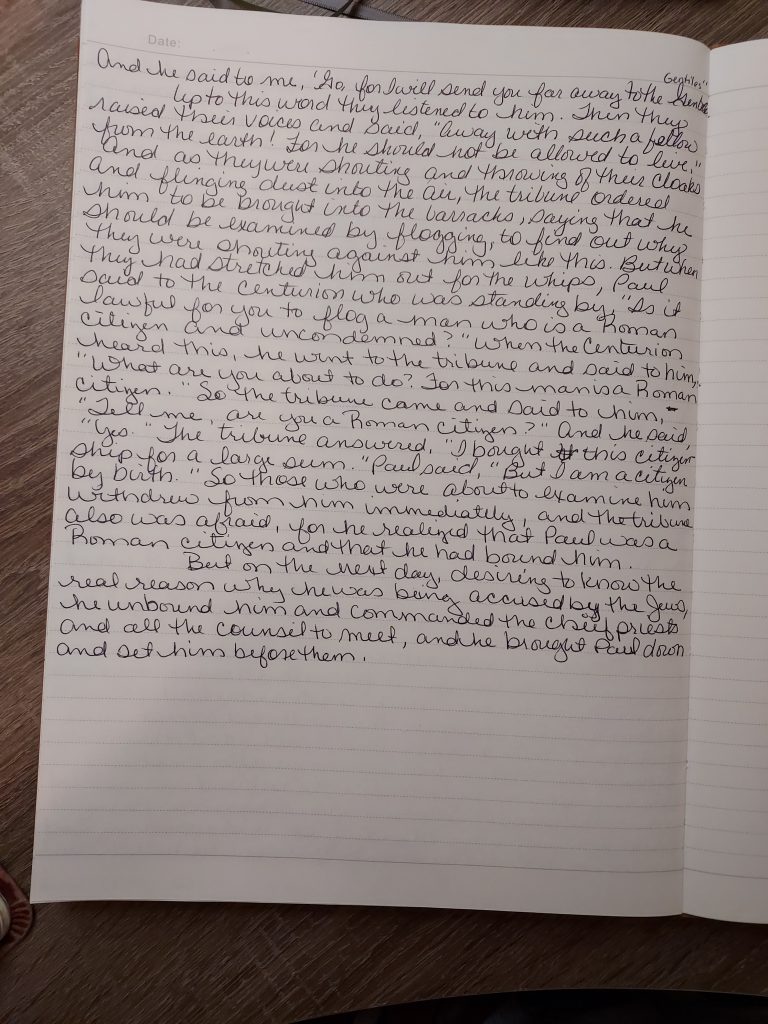 Date:
Gentiles."
And he said to me, 'Go, for I will send you far away to the
Up to this word they listened to him. Then they
raised their voices and said, "Away with such a fellow
from the earth! For he should not be allowed to live."
And as they were shouting and throwing of their cloaks
and flinging dust into the air, the tribune ordered
him to be brought into the barracks, saying that he
should be examined by flogging, to find out why
they were shouting against him like this. But when
they had stretched him out for the whips, Paul
said to the centurion who was standing by, "Is it
lawful for you to flog a man who is a Roman
citizen and uncondemned?" When the Centurion
heard this, he went to the tribune and said to him,
"What are you about to do? For this man is a Roman
citizen." So the tribune came and said to him,
"Tell me, are you a Roman citizen?" And he said,
"Yes." The tribune answered, "I bought this citizen
ship for a large sum." Paul said, "But I am a citizen
by birth." So those who were about to examine him
withdrew from him immediately, and the tribune
also was afraid, for he realized that Paul was a
Roman citizen and that he had bound him.
But on the next day, desiring to know the
real reason why he was being accused by the Jews,
he unbound him and commanded the chief priests
and all the counsil to meet, and he brought Paul down
and set him before them.